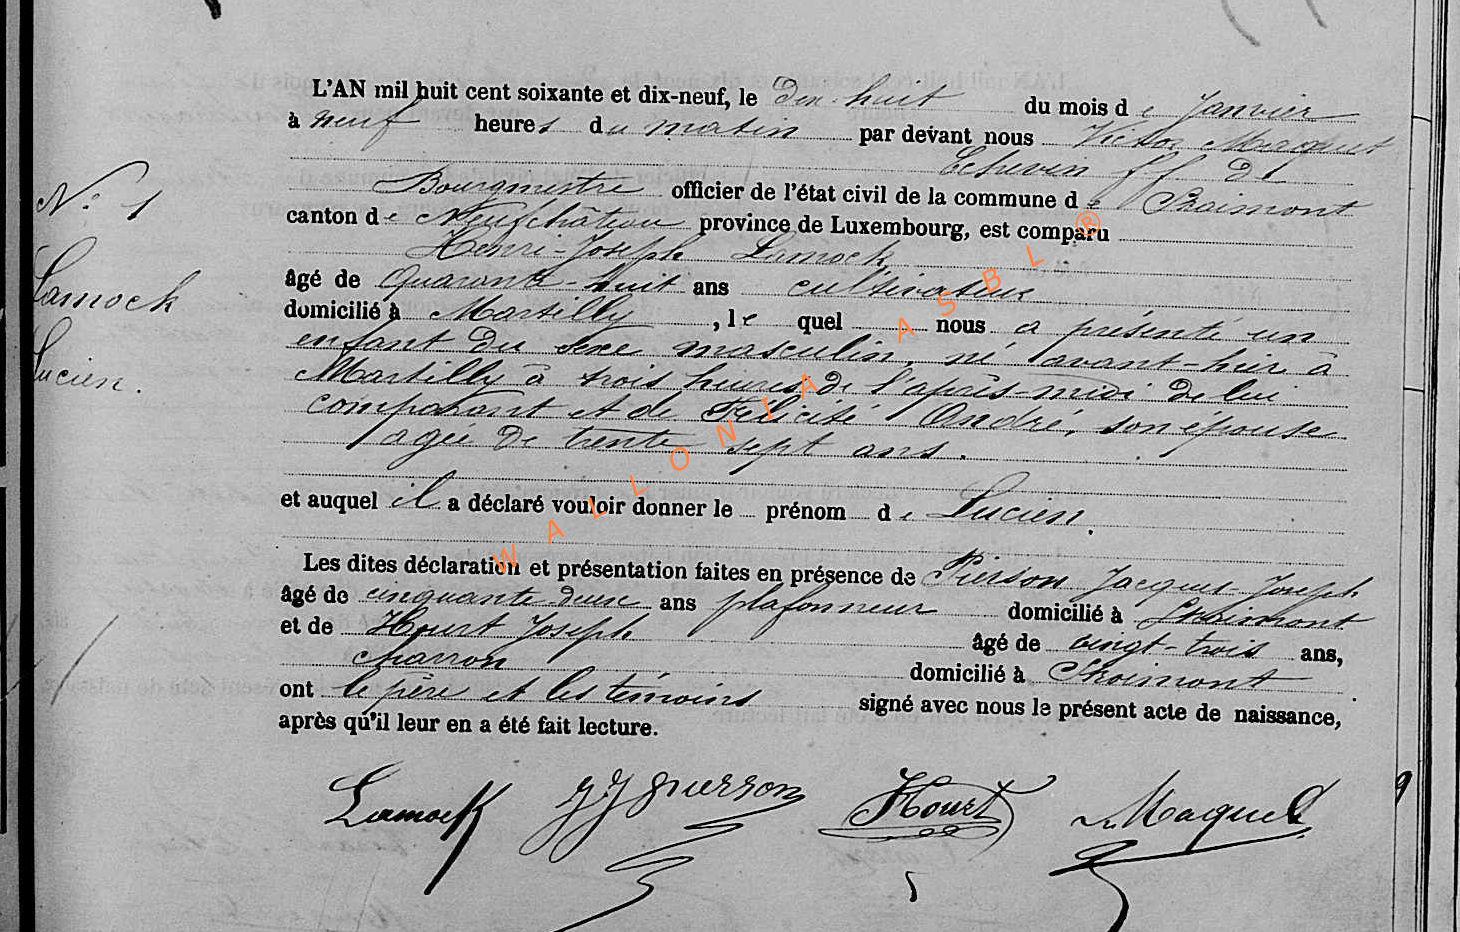 L'AN mil huit cent soixante et dix-neuf, le dix-huit du mois de Janvier
à neuf heures du matin par devant nous Victor Maquet
Echevin ff de
Bourgmestre officier de l'état civil de la commune de Straimont
canton de Neufchâteau province de Luxembourg, est comparu
Henri-Joseph Lamock
âgé de quarante-huit ans cultivateur
domicilié à Martilly, lequel nous a présenté un
enfant du sexe masculin, né avant-hier à
Martilly à trois heures de l'après-midi de lui
comparant et de Félicité André, son épouse
agée de trente sept ans.
et auquel il a déclaré vouloir donner le prénom de Lucien.
Les dites déclaration et présentation faites en présence de Pierson Jacques Joseph
âgé de cinquante deux ans plafonneur domicilié à Straimont
et de Hourt Joseph âgé de vingt-trois ans,
charron domicilié à Straimont
ont le père et les témoins signé avec nous le présent acte de naissance,
après qu'il leur en a été fait lecture.
N° 1
Lamock
Lucien.
Lamock JJ pierson Hourt Maquet
WALLONIA ASBL ®